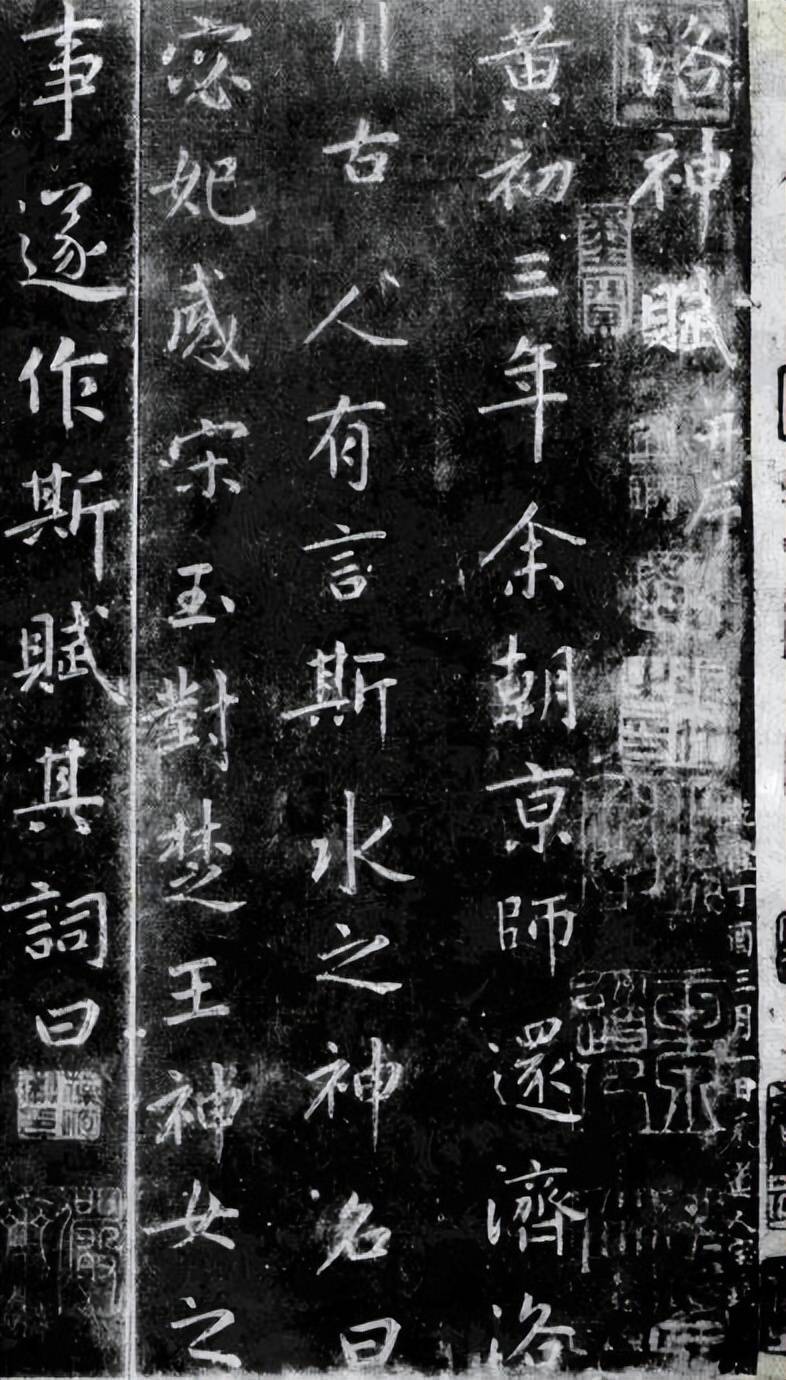 洛神賦 并序
黃初三年余朝京師還濟洛
川古人有言斯水之神名曰
宓妃感宋玉對楚王神女之
事遂作斯賦其詞曰
丁酉三月一日